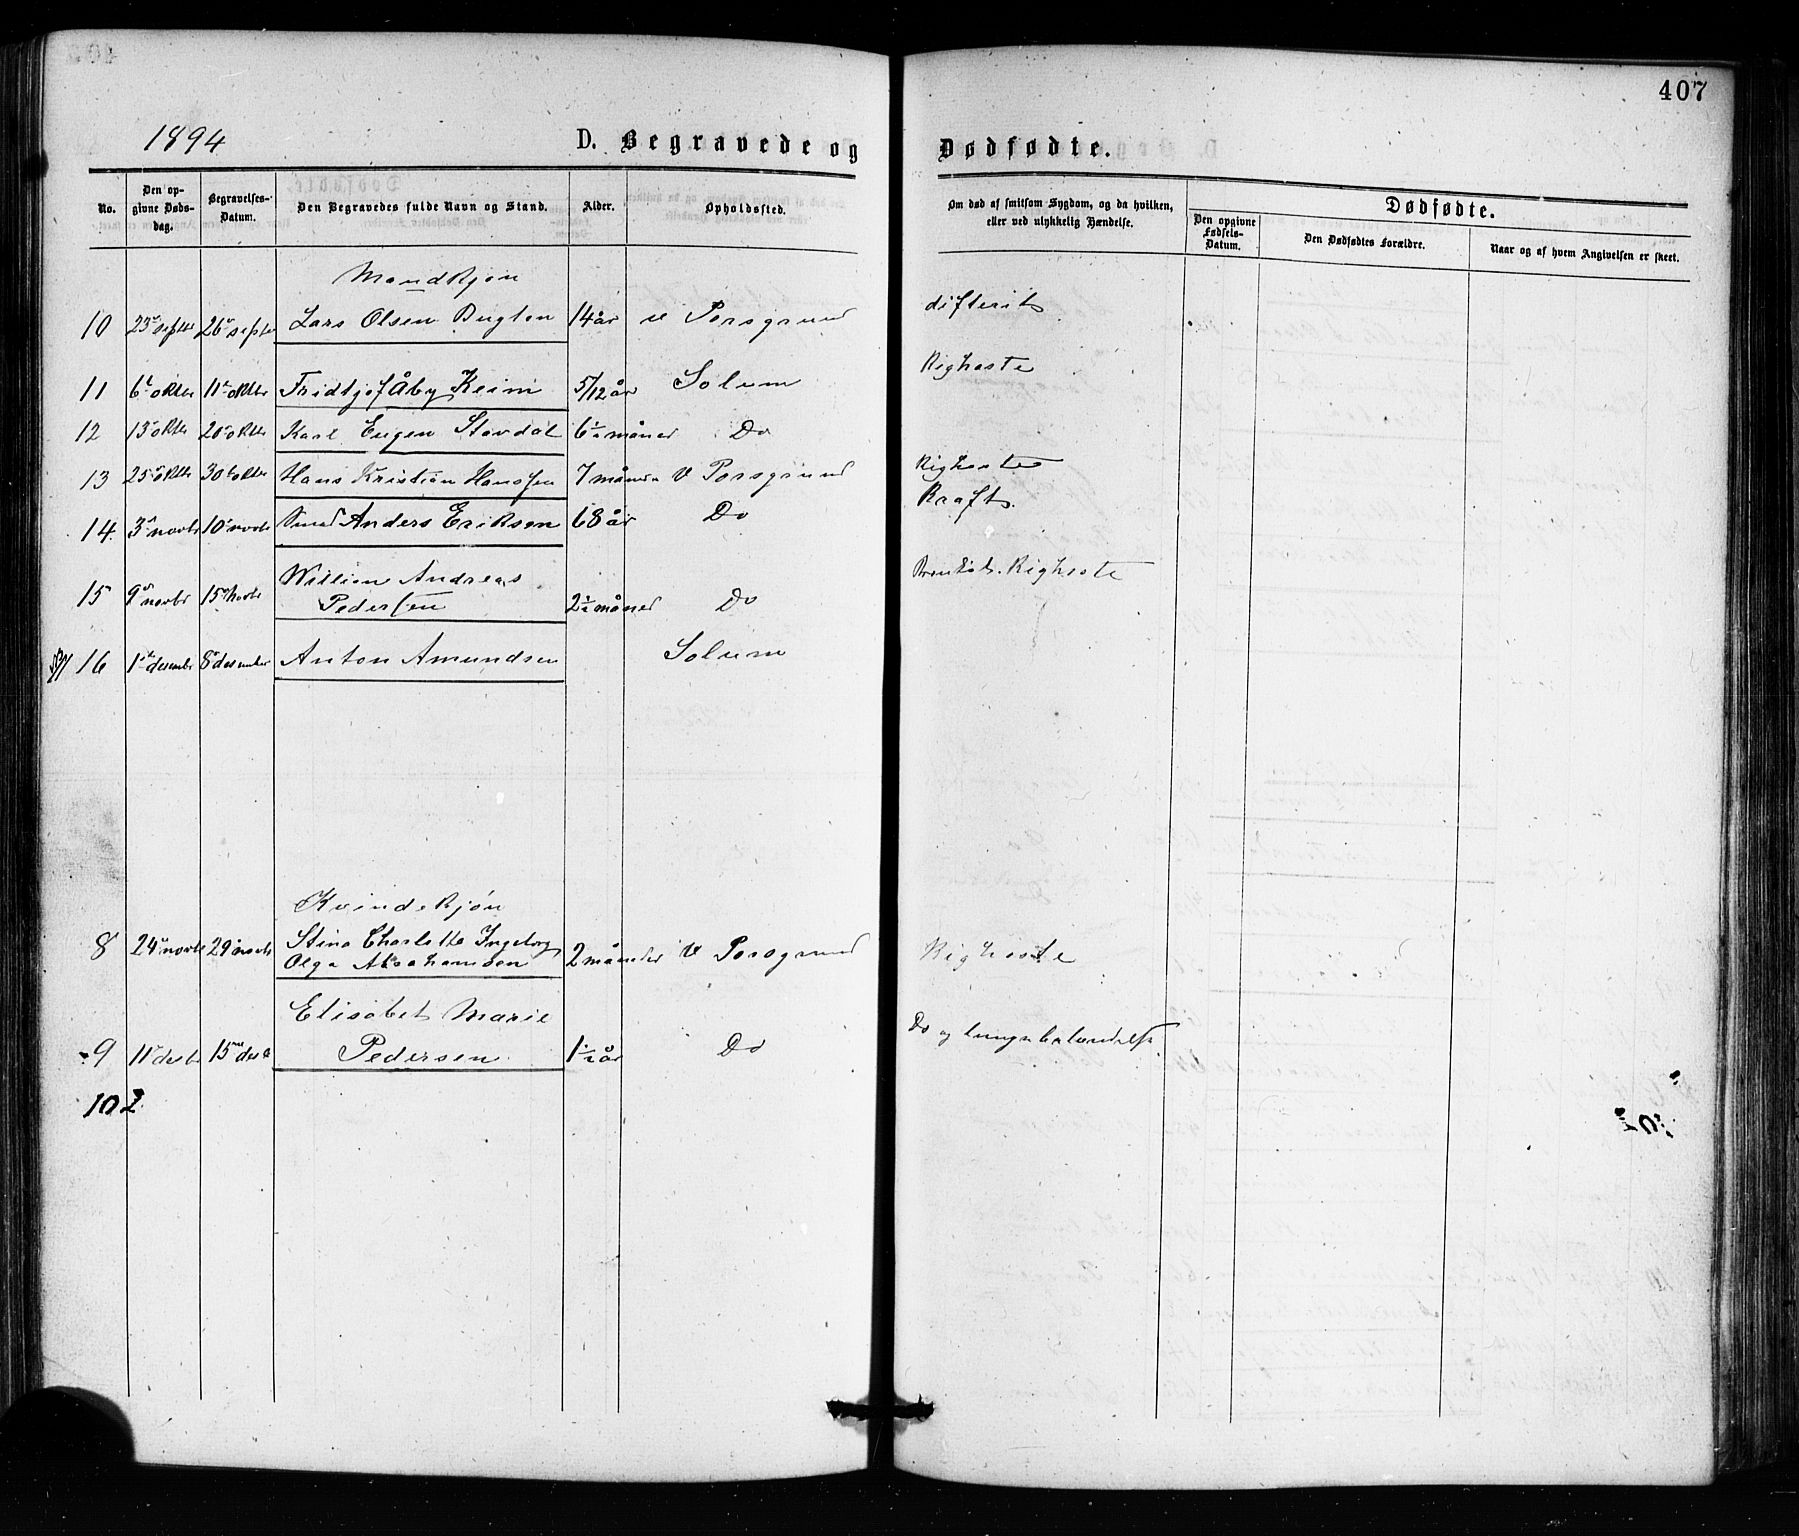 407
1894
D. Begravede og Dødfødte.
No.
Den opgivne Døds-dag.
Begravelses-Datum.
Den Begravedes fulde Navn og Stand.
Alder.
Opholdssted.
Om død af smitsom Sygdom, og da hvilken, eller ved ulykkelig Hændelse.
Dødfødte.
Den opgivne Fødsels-Datum.
Den Dødfødtes Forældre.
Naar og af hvem Angivelsen er skeet.
Mandkjøn
10 23 septbr 26 septbr Lars Olsen 14 år V Porsgrund difterit
11 6 oktbr 11 oktbr Fridtjof Åby Keim 5/12 år Solum Kighoste
12 13 oktbr 20 oktbr Karl Eugen Stavdal 6½ måner Do
13 25 oktbr 30 oktbr Hans Kristian Hanssen 7 måneder V Porsgrund Kighoste
14. 3 novbr 10 novbr Smed Anders Eriksen 68 år Do Kræft.
15 9 novbr 15 novbr William Andreas
Pedersen 2½ måned Do Kighoste
16 1 desembr 8 desember Anton Amundsen Solum
Kvindekjøn
8 24 novbr 29 novbr Stina Charlotte Ingeborg
Olga Abrahamsen 2 måneder V Porsgrund Kighoste
9 11 desbr 15 desbr Elisabet Marie
Pedersen 1½ år Do Do og lungebetændelse
10